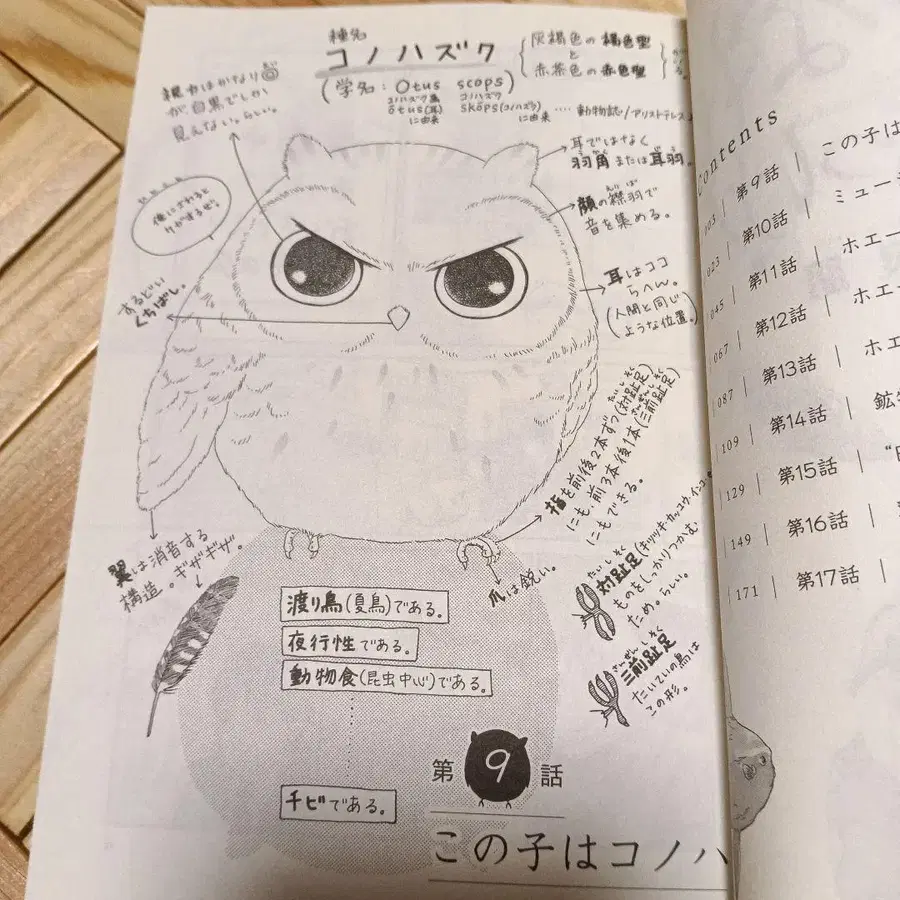 種名
コノハズク
(学名：Otus scops)
コノハズク属 コノハズク
ōtus(耳) skōps(コノハズク)
に由来 に由来 ‥‥動物誌/アリストテレス
灰褐色の褐色型
と
赤茶色の赤色型
視力はかなり◎
が、白黒でしか
見えない。らしい。
俺にさわると
ケガするぜ!
するどい
くちばし。
耳ではなく
羽角または耳羽。
顔の襟羽で
音を集める。
耳はココ
らへん。
(人間と同じ
ような位置。)
指を前後2本ずつ(対趾足)
にも、前3本後1本(三前趾足)
にもできる。
爪は鋭い。
対趾足(キツツキ・カッコウ・インコ
ものをしっかりつかむ
ため。らしい。
三前趾足
たいていの鳥は
この形。
翼は消音する
構造。ギザギザ。
渡り鳥(夏鳥)である。
夜行性である。
動物食(昆虫中心)である。
チビである。
第9話
この子はコノハ
contents
003 | 第9話 | この子は
023 | 第10話 | ミュー
045 | 第11話 | ホエー
067 | 第12話 | ホエー
087 | 第13話 | ホエ
109 | 第14話 | 鉱
129 | 第15話 |
149 | 第16話 |
171 | 第17話 |